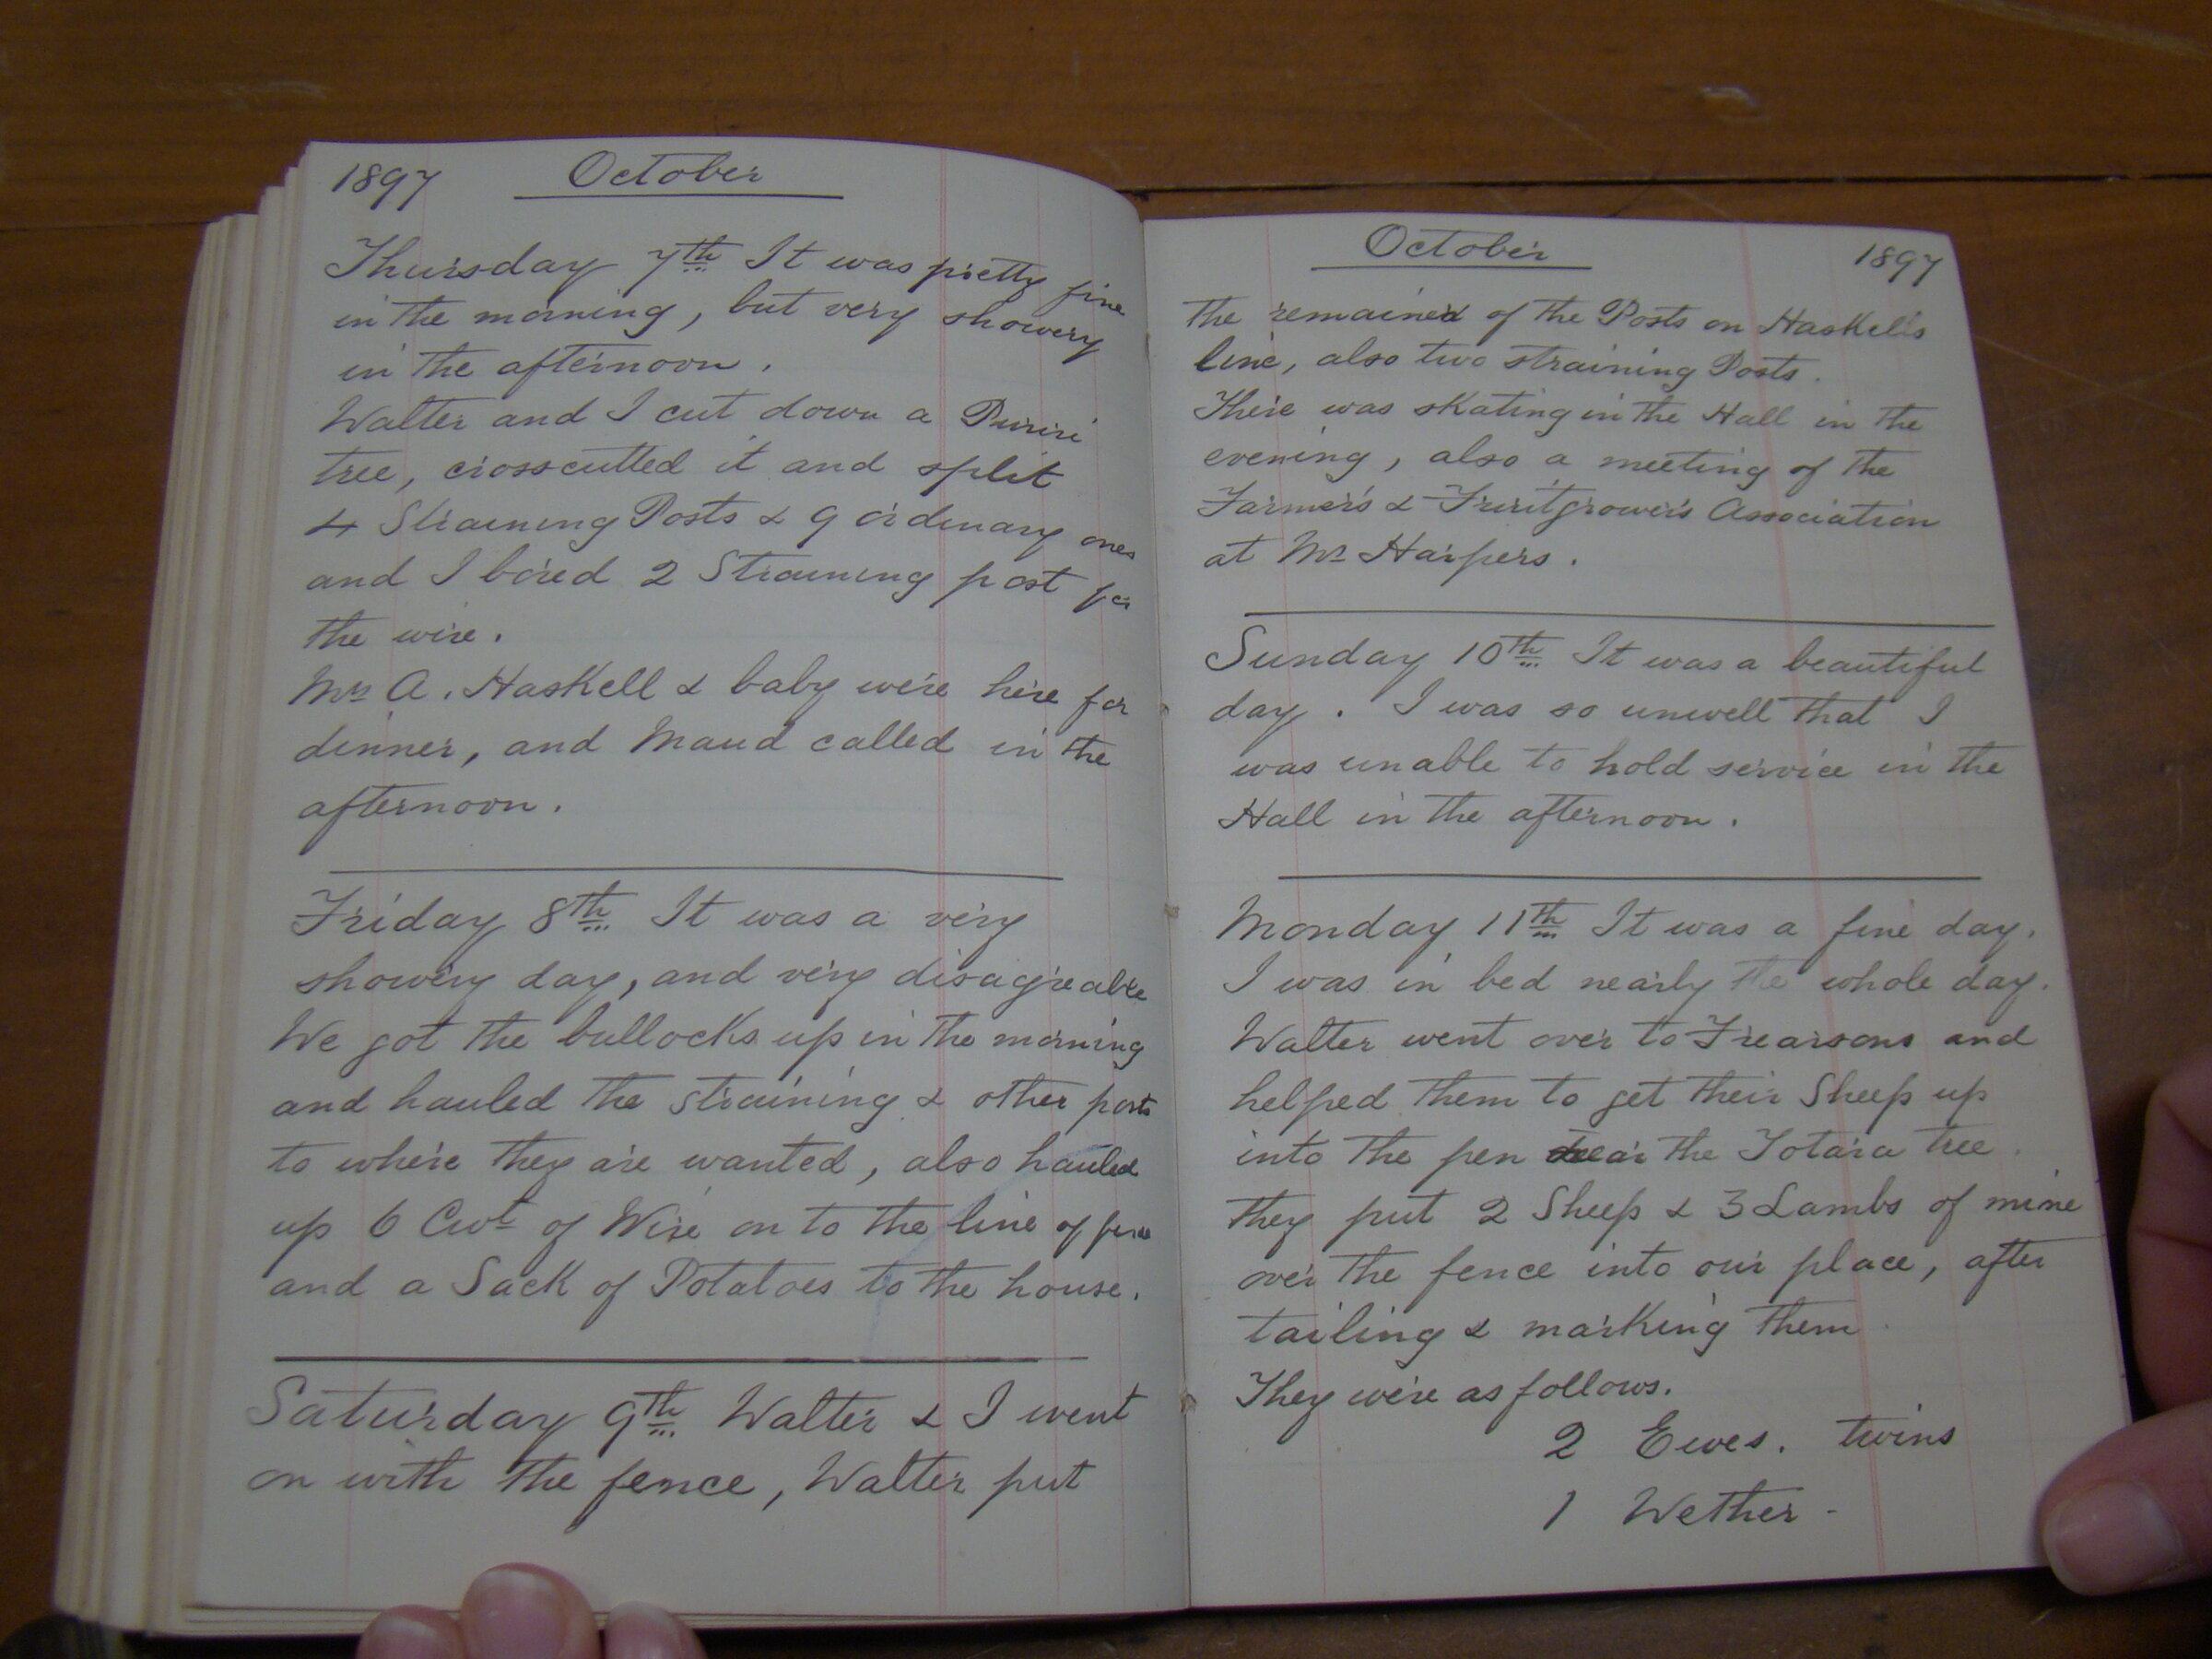 1897 October
Thursday 7th It was pretty fine
in the morning, but very showery
in the afternoon.
Walter and I cut down a Puriri
tree, crosscutted it and split
4 Straining Posts & 9 ordinary ones
and I bored 2 Straining post for
the wire.
Mrs A. Haskell & baby were here for
dinner, and Maud called in the
afternoon.
Friday 8th It was a very
showery day, and very disagreable
We got the bullocks up in the morning
and hauled the straining & other posts
to where they are wanted, also hauled
up 6 Cwt of Wire on to the line of fence
and a Sack of Potatoes to the house.
Saturday 9th Walter & I went
on with the fence, Walter put
October 1897
the remained of the Posts on Haskells
line, also two straining Posts.
There was skating in the Hall in the
evening, also a meeting of the
Farmer's & Fruitgrower's Association
at Mr Harpers.
Sunday 10th It was a beautiful
day. I was so unwell that I
was unable to hold service in the
Hall in the afternoon.
Monday 11th It was a fine day.
I was in bed nearly the whole day.
Walter went over to Frearsons and
helped them to get their Sheep up
into the pen near the Totara tree.
they put 2 Sheep & 3 Lambs of mine
over the fence into our place, after
tailing & marking them
They were as follows.
2 Ewes. twins
1 Wether -